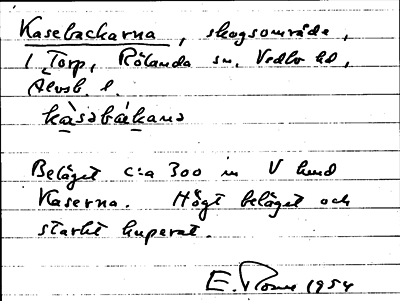 Kasebackarna, skogsområde,
1 Torp, Rölanda sn. Vedbo hd,
Älvsb. l.
kàsabákana
Beläget c:a 300 m V hund
Kaserna. Högt beläget och
starkt kuperat.
E. 1954